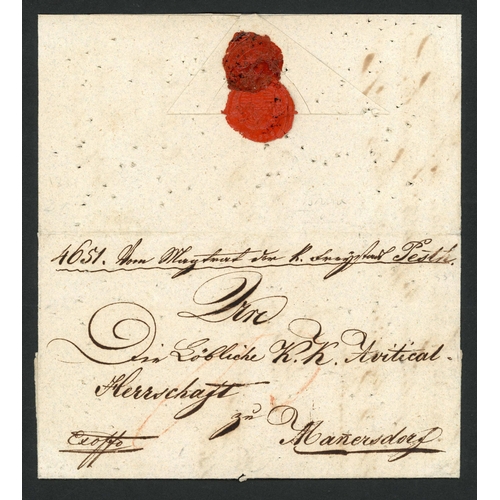 4651. Vom Magtrat der k. Freystadt Pesth.
Die Löbliche K. K. Avitical-
Herrschaft
zu
Manersdorf